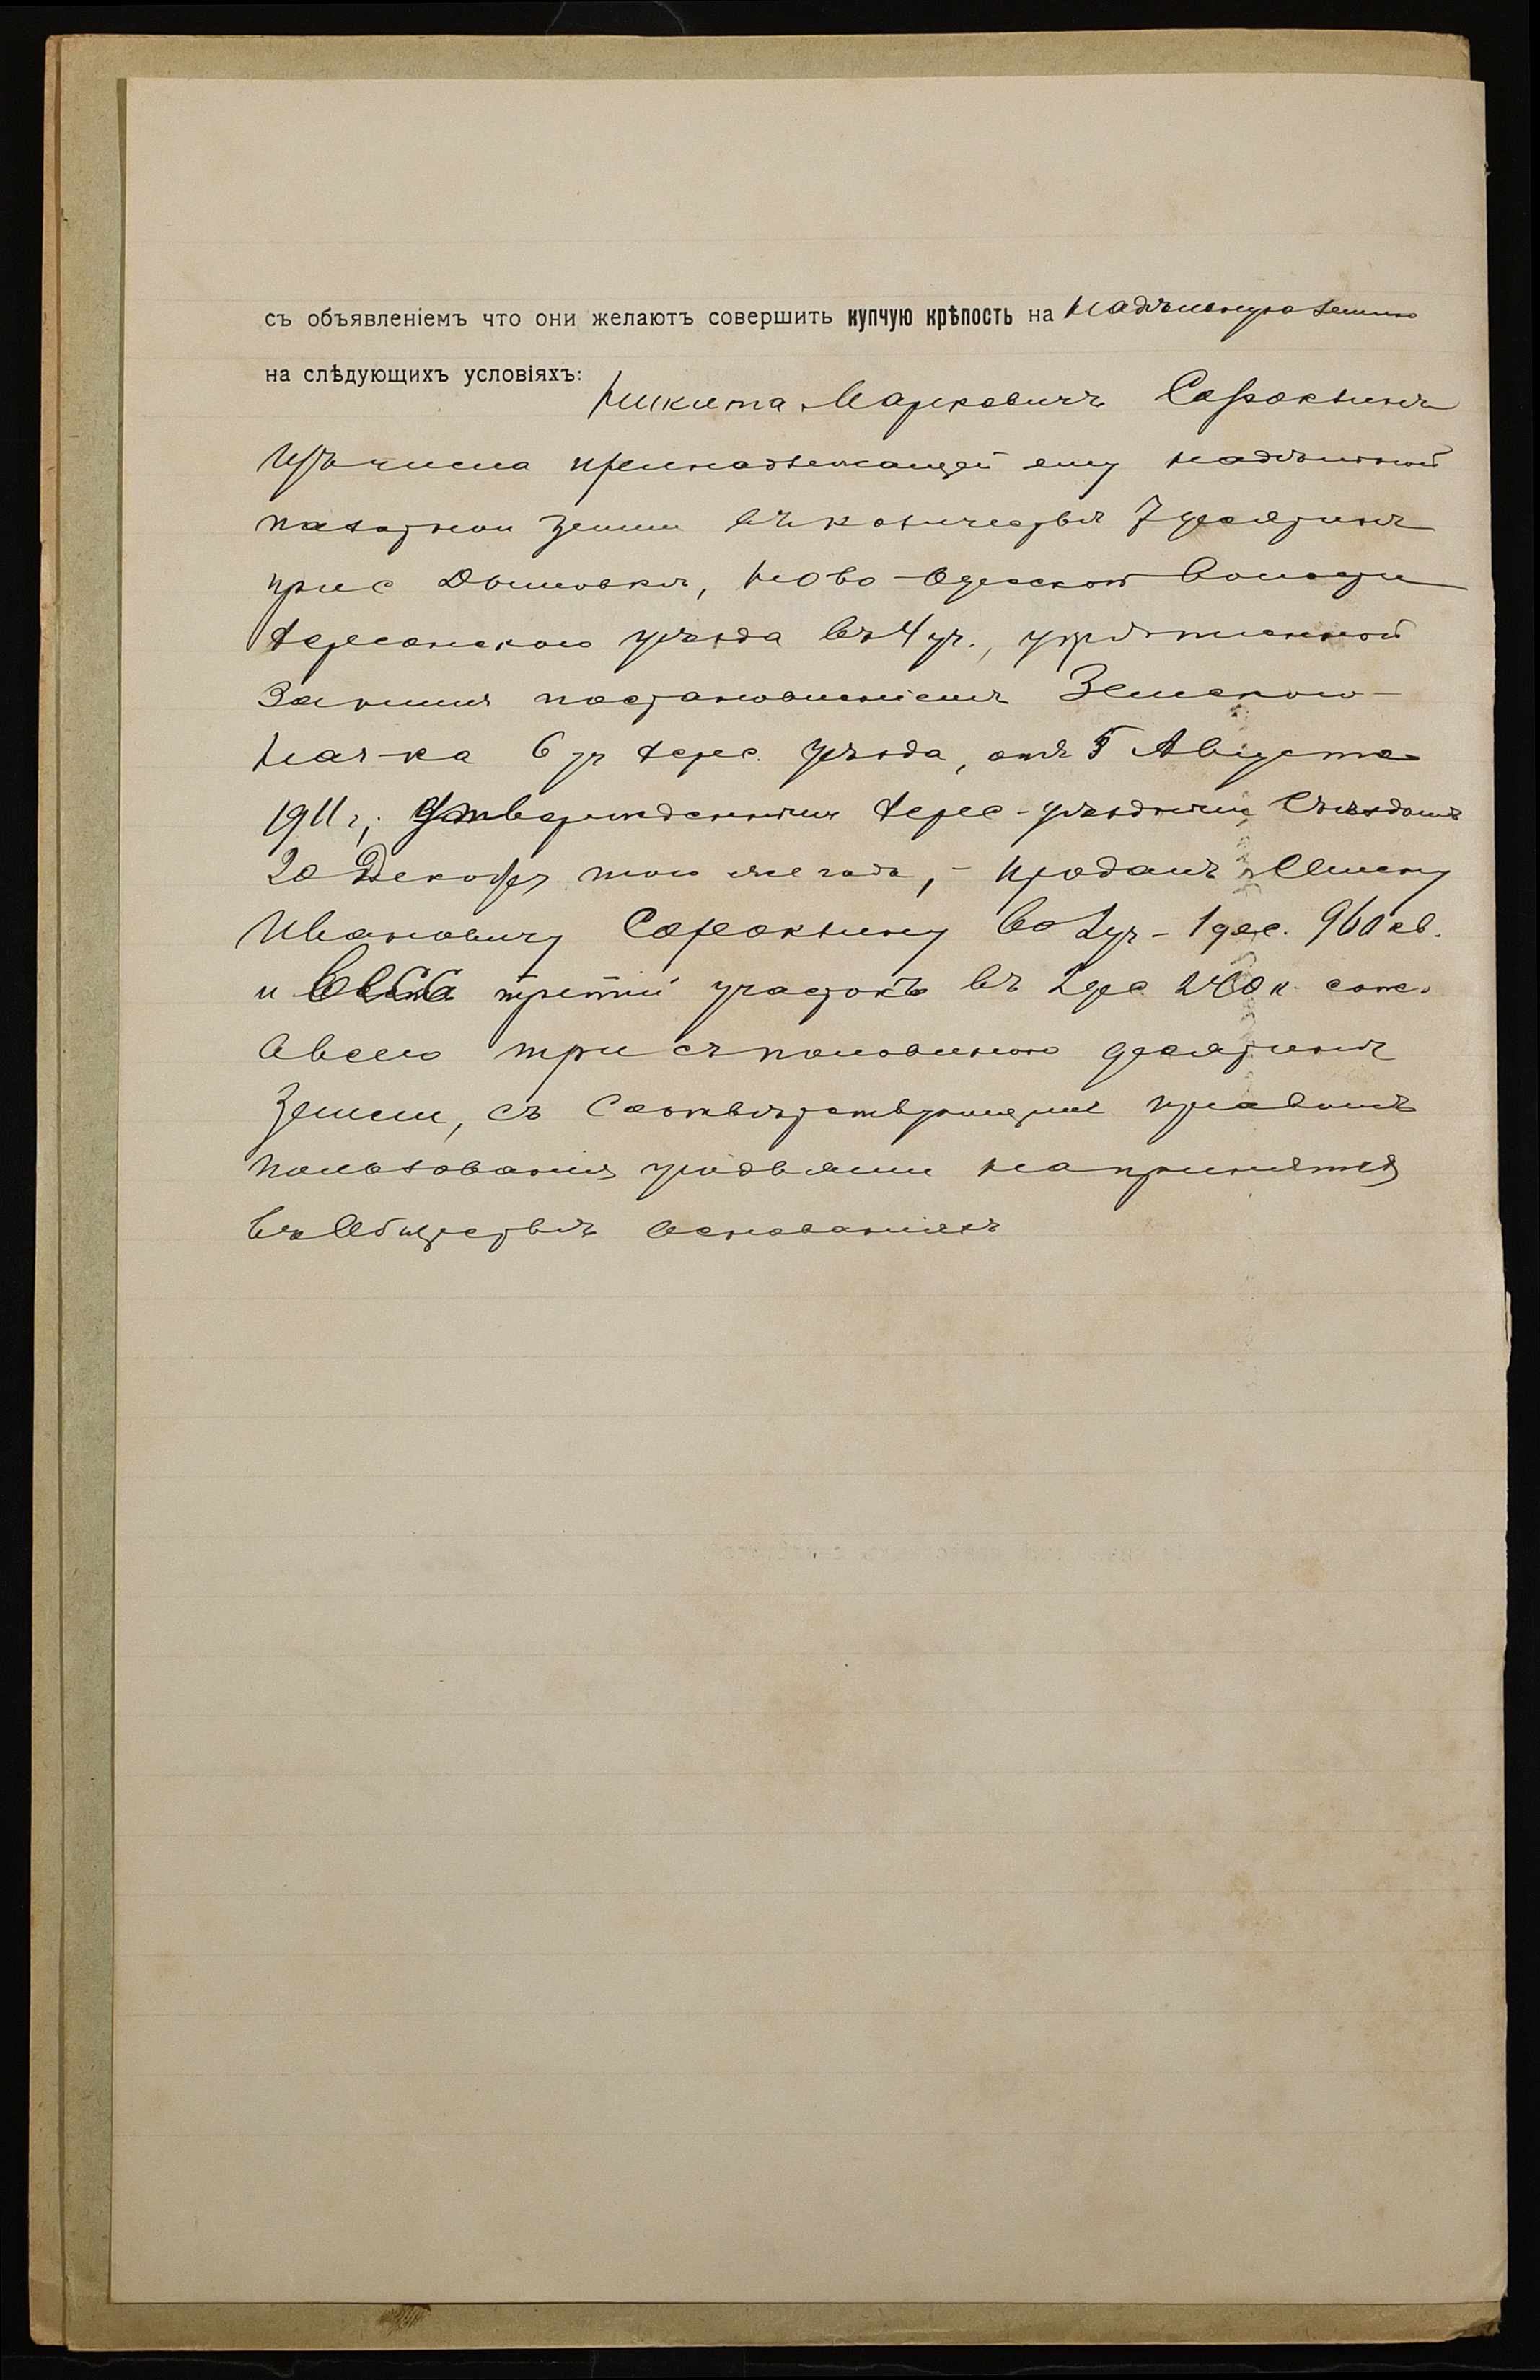 съ объявленіемъ что они желаютъ совершить купчую крѣпость на надѣльную землю
на слѣдующихъ условіяхъ:
Никита Марковичъ
Изъ числа принадлежащей ему надѣльной
земли въ количествѣ 7 десятинъ
при с Дымовкѣ, Ново-Одесской волости
Херсонскаго уѣзда въ 4 уч., укрѣпленной
за нимъ постановленіемъ Земскаго
Нач-ка 6 уч Херс. уѣзда, отъ 5 Августа
1911 г, утвержденнымъ Херс-уѣзднымъ Съѣздомъ
20 Декабря того же года, - продалъ
Ивановичу во 2 уч - 1 дес. 960 кв.
и третій участокъ въ 2 дес 240 к. саж.
а всего три съ половиною десятины
земли, съ соотвѣтствующимъ правомъ
пользованія угодьями на принятыхъ
въ обществѣ основаніяхъ